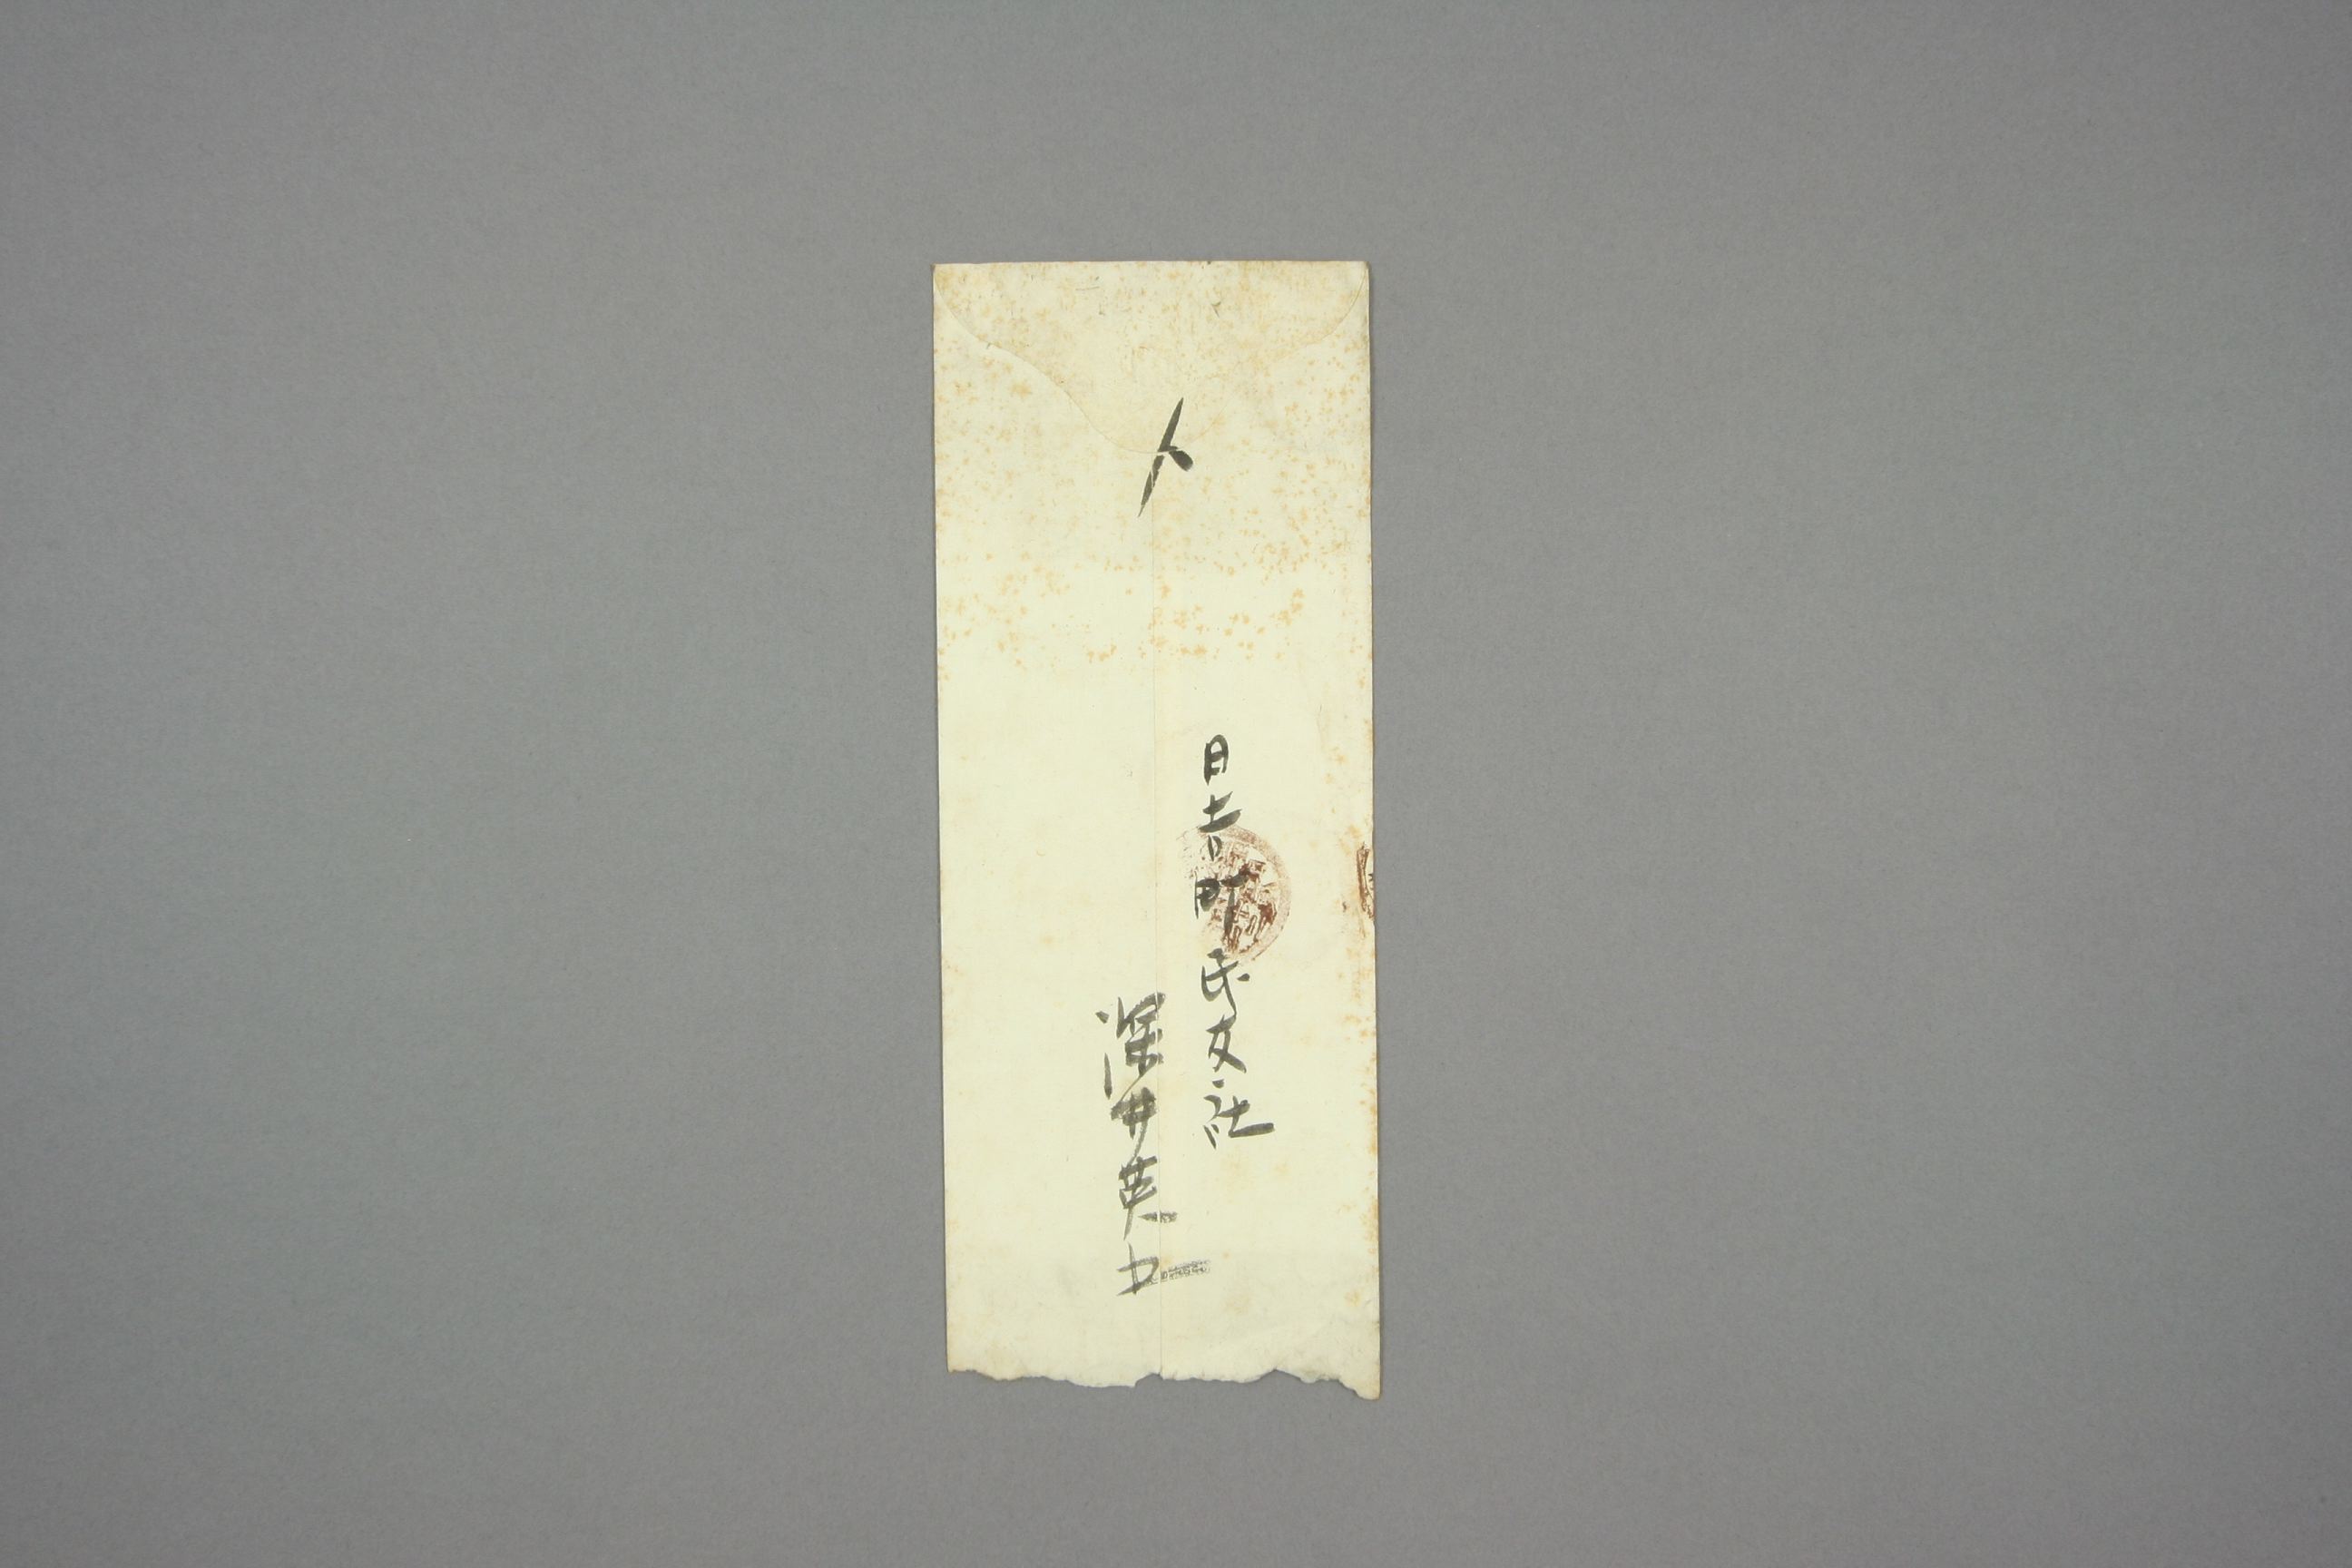 〆
日吉町民友社
深井英五